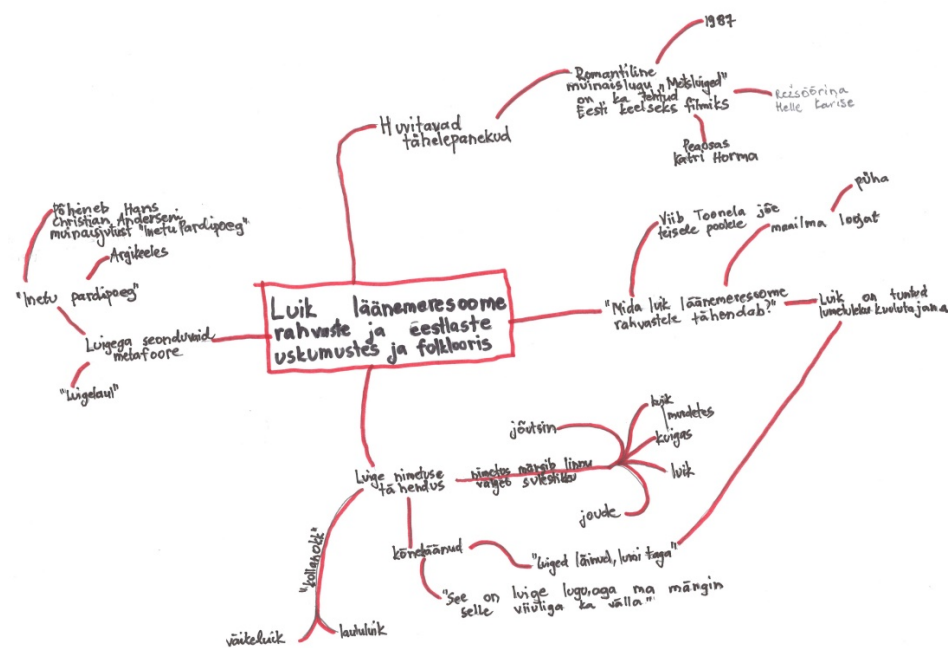 Luik läänemeresoome
rahvaste ja eestlaste
uskumustes ja folklooris
Huvitavad
tähelepanekud
Romantiline
muinaislugu "Metsluiged"
on ka tehtud
Eesti keelseks filmiks
1987
Helle Karise
Peaosas
Katri Horma
"Mida luik läänemeresoome
rahvastele tähendab?"
Viib Toonela jõe
teisele poolele
maailma loojat
püha
Luik on tuntud
lumetuleku kuulutajana
Luige nimetuse
tähendus
nimetus märgib linnu
valget sulestikku
jõutsin
luik
murdetes
kuigas
luik
joude
kõnekäänud
"Luiged läinud, lumi taga"
"See on luige lugu, aga ma mängin
selle viiuliga ka välla"
"kollanokk"
väikeluik
laululuik
Luigega seonduvaid
metafoore
"Inetu pardipoeg"
Argikeeles
Põhineb Hans
Christian Anderseni
muinasjutust "Inetu Pardipoeg"
"Luigelaul"